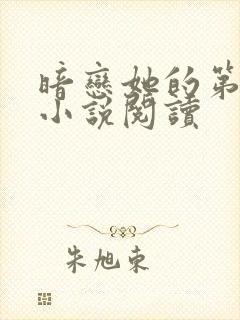 暗戀她的第
小說閱讀
朱旭東